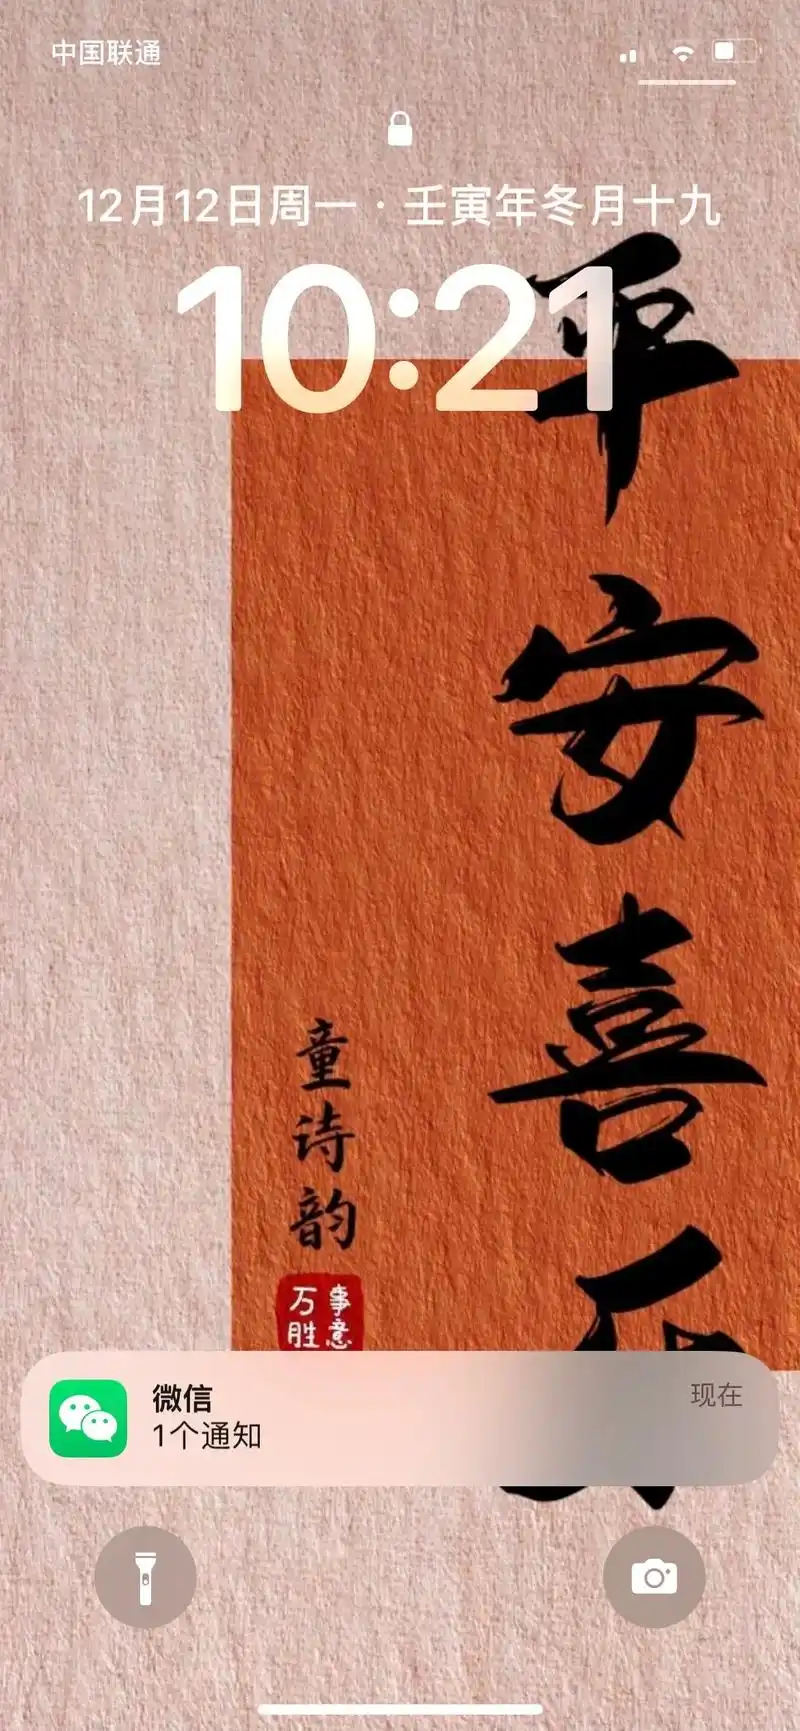 中国联通
12月12日周一 · 壬寅年冬月十九
10:21
平安喜
童诗韵
事意
万胜
微信
现在
1个通知